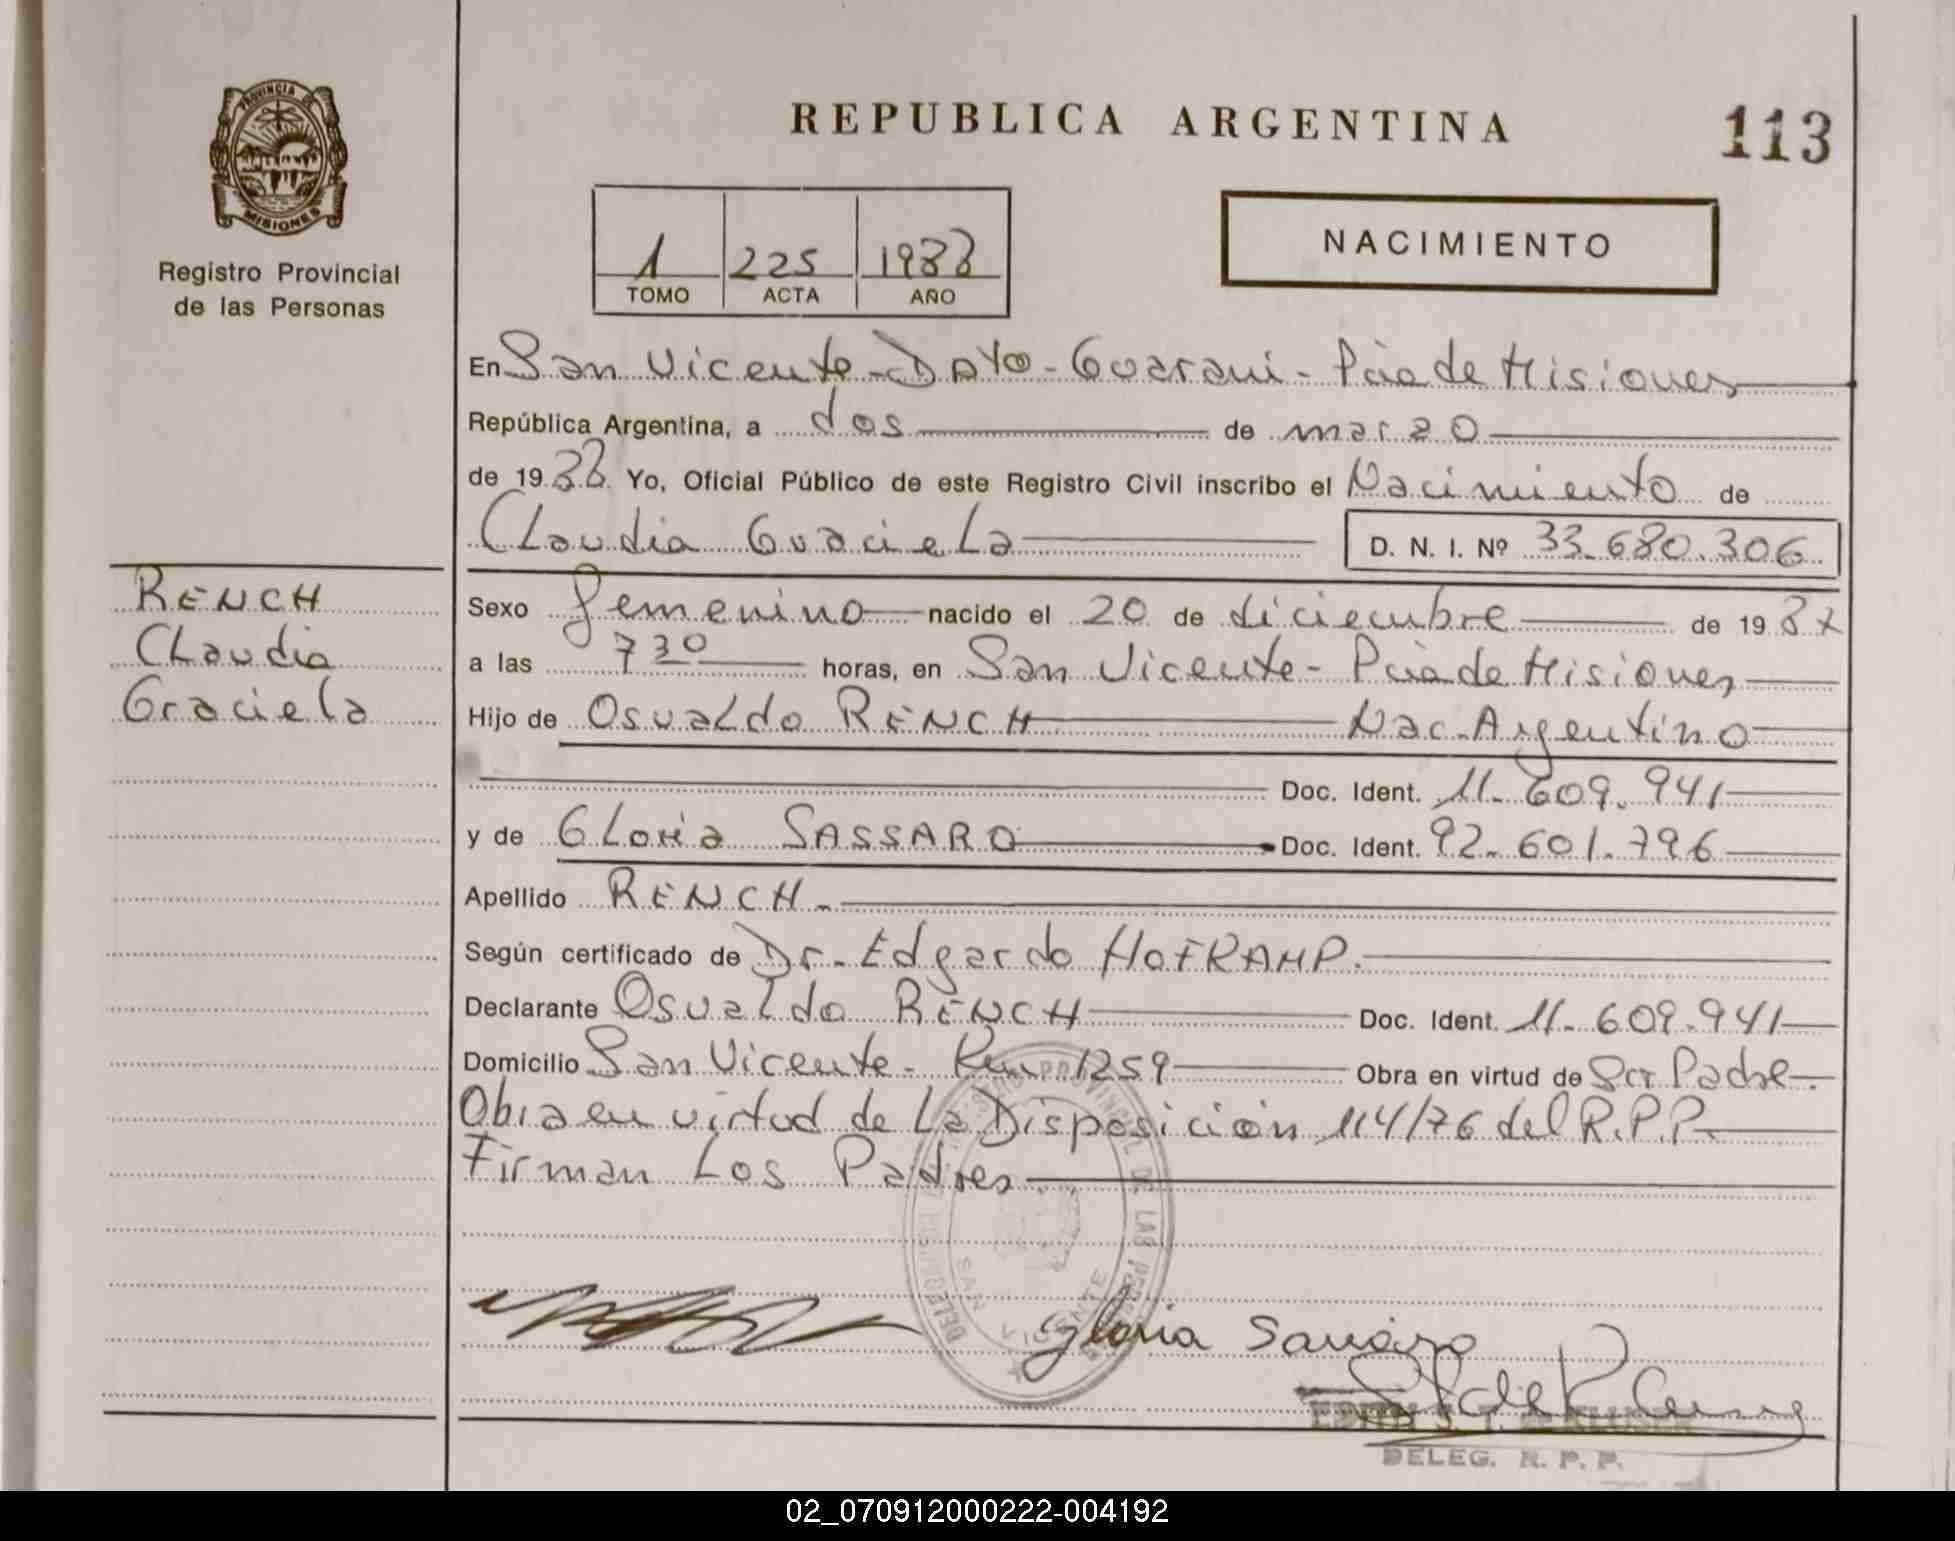 PROVINCIA DE
MISIONES
Registro Provincial
de las Personas
REPUBLICA ARGENTINA
113
1 225 1988
TOMO ACTA AÑO
NACIMIENTO
En San Vicente - Dpto - Guarani - Pcia de Misiones
República Argentina, a dos de marzo
de 1988 Yo, Oficial Público de este Registro Civil inscribo el Nacimiento de
Claudia Graciela D. N. I. Nº 33.680.306
RENCH
Claudia
Graciela
Sexo femenino nacido el 20 de diciembre de 1987
a las 7 30 horas, en San Vicente - Pcia de Misiones
Hijo de Osvaldo RENCH Nac. Argentino
Doc. Ident. 11.609.941
y de Gloria SASSARO Doc. Ident. 92.601.796
Apellido RENCH.
Según certificado de Dr. Edgardo HOFRAMP.
Declarante Osvaldo RENCH Doc. Ident. 11.609.941
Domicilio San Vicente - Km 1259 Obra en virtud de Ser Padre.
Obra en virtud de La Disposición 114/76 del R.P.P.
Firman Los Padres
SAN VICENTE
Gloria Sassaro
DELEG. R. P. P.
02_070912000222-004192